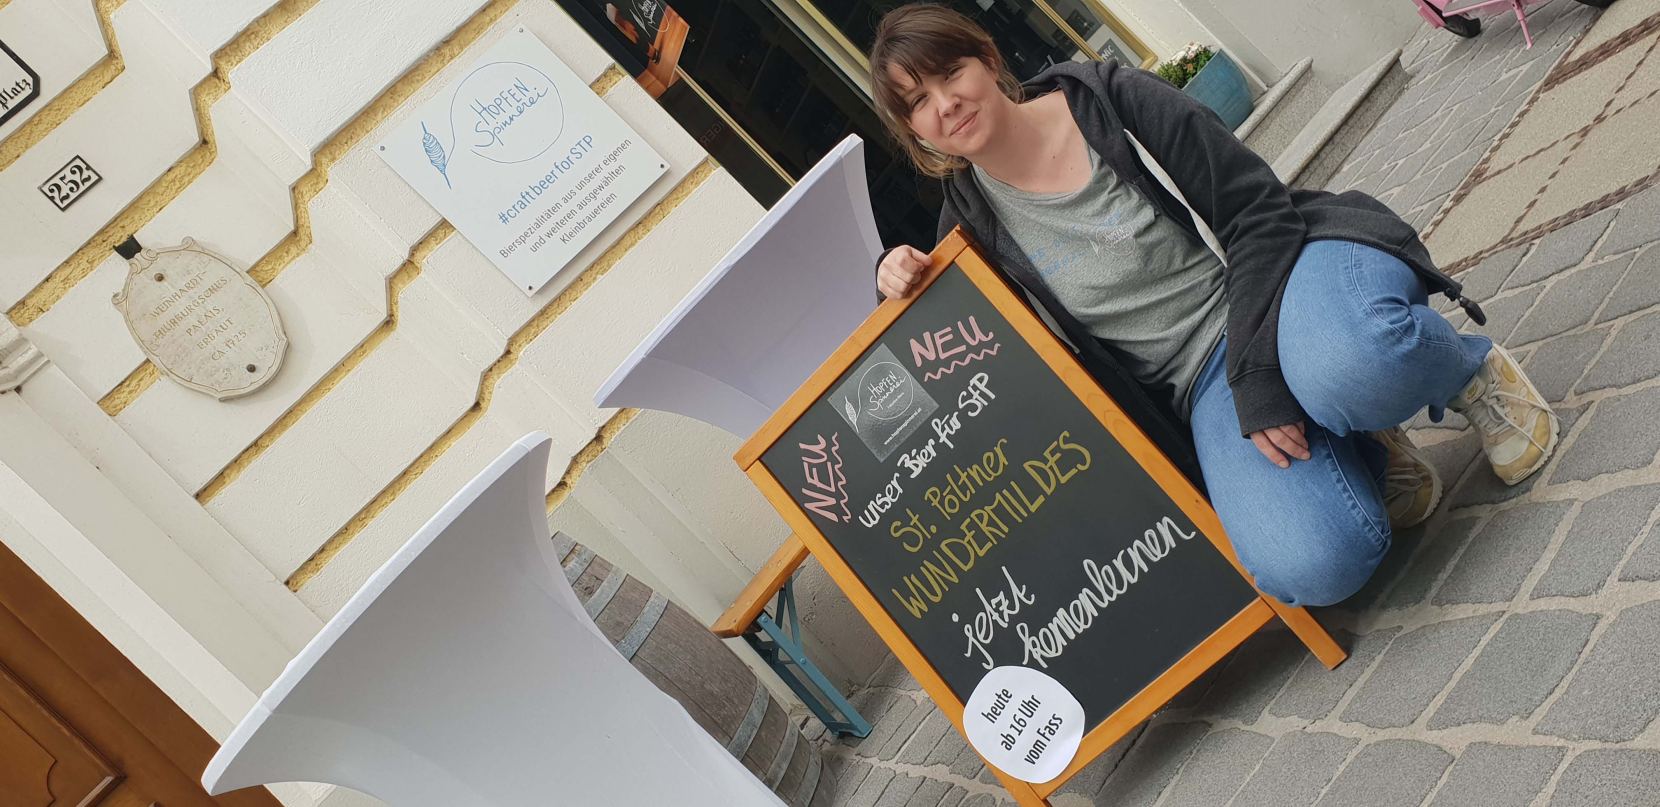 platz
252
WEINHARDT-
THURBURGSCHES
PALAIS,
ERBAUT
CA. 1725
HOPFEN
Spinnerei
#craftbeerforSTP
Bierspezialitäten aus unserer eigenen
und weiteren ausgewählten
Kleinbrauereien
NEU
NEU
HOPFEN
Spinnerei
www.hopfenspinnerei.at
unser Bier für StP
St. Pöltner
WUNDERMILDES
jetzt
kennenlernen
heute
ab 16 Uhr
vom Fass